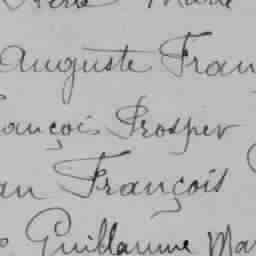 Marie
Auguste Fran
ançois Prosper
an François
Guillaume Mar